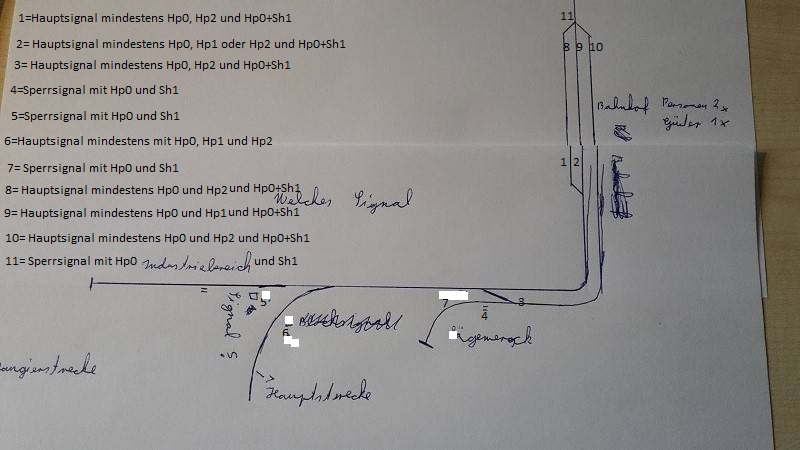 1=Hauptsignal mindestens Hp0, Hp2 und Hp0+Sh1
2= Hauptsignal mindestens Hp0, Hp1 oder Hp2 und Hp0+Sh1
3= Hauptsignal mindestens Hp0, Hp2 und Hp0+Sh1
4=Sperrsignal mit Hp0 und Sh1
5=Sperrsignal mit Hp0 und Sh1
6=Hauptsignal mindestens mit Hp0, Hp1 und Hp2
7= Sperrsignal mit Hp0 und Sh1
8= Hauptsignal mindestens Hp0 und Hp2 und Hp0+Sh1
9= Hauptsignal mindestens Hp0 und Hp1 und Hp0+Sh1
10= Hauptsignal mindestens Hp0 und Hp2 und Hp0+Sh1
11= Sperrsignal mit Hp0 und Sh1
11
8 9 10
Bahnhof Personen 2x
Güter 1x
1 2
Welches Signal
Industriebereich
5
7
3
4
Signal ?
6
Hauptstrecke
angierstrecke